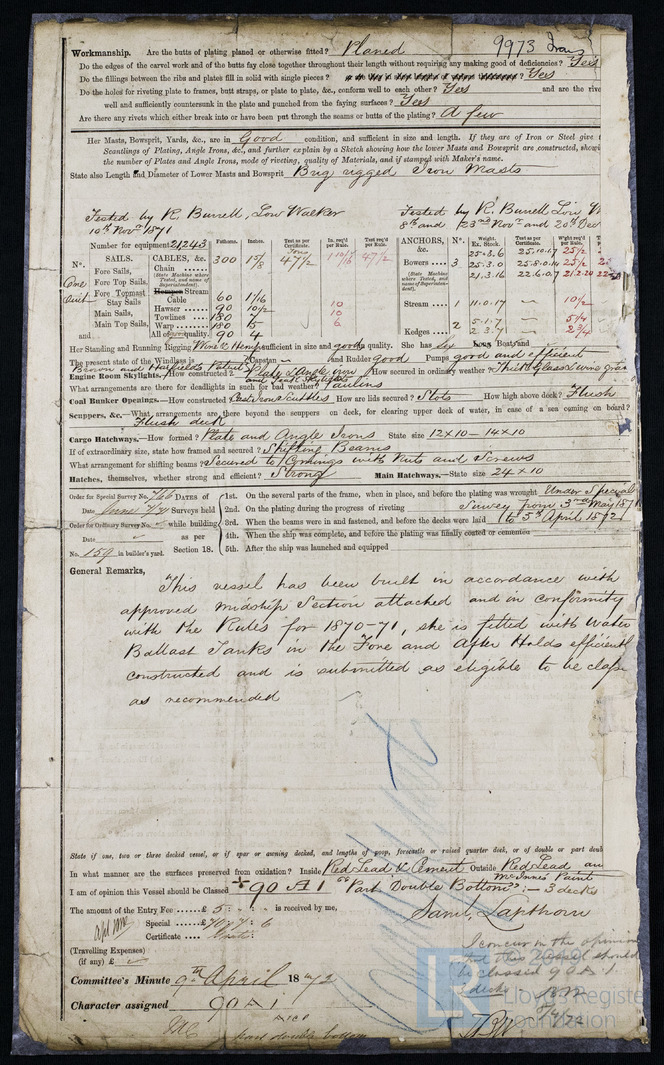 9973 Iron
Workmanship. Are the butts of plating planed or otherwise fitted? Planed
Do the edges of the carvel work and of the butts fay close together throughout their length without requiring any making good of deficiencies? Yes
Do the fillings between the ribs and plates fill in solid with single pieces? Yes
Do the holes for riveting plate to frames, butt straps, or plate to plate, &c., conform well to each other? Yes and are the rive
well and sufficiently countersunk in the plate and punched from the faying surfaces? Yes
Are there any rivets which either break into or have been put through the seams or butts of the plating? A few
Her Masts, Bowsprit, Yards, &c., are in Good condition, and sufficient in size and length. If they are of Iron or Steel give t
Scantlings of Plating, Angle Irons, &c., and further explain by a Sketch showing how the lower Masts and Bowsprit are constructed, showi
the number of Plates and Angle Irons, mode of riveting, quality of Materials, and if stamped with Maker's name.
State also Length and Diameter of Lower Masts and Bowsprit Brig rigged Iron Masts
Tested by R. Burrell, Low Walker
10th Novr 1871
Tested by R. Burrell, Low W
8th and 23rd Novr and 20th Dec
Number for equipment 21243 Fathoms. Inches. Test as per Certificate. In. req'd per Rule. Test req'd per Rule.
ANCHORS, &c. No. Weight. Ex. Stock. Test as per Certificate. Wght req'd per Rule.
No. SAILS. CABLES, &c. 300 1 15/16 47 1/2 1 15/16 47 1/2
Fore Sails, Chain
(State Machine where Tested, and name of Superintendent).
Bowers 3 25.3.6 25.10.17 25/2
25.3.0 25.8.0.14 25/2
21.3.16 22.6.0.7 21.2.20
(State Machine where Tested, and name of Superintendent).
One Fore Top Sails,
Suit Fore Topmast Stay Sails
Hempen Stream Cable 60 1 1/16
Stream 1 11.0.17 10/2
Main Sails, Hawser 90 10/2 10
Main Top Sails, Towlines 180 7 10
Warp 180 5 6
and All of good quality. 90 4
Kedges 2 5.1.7 5/4
2.3.7 2 3/4
Her Standing and Running Rigging Wire & Hemp sufficient in size and good quality. She has Long Boats and
The present state of the Windlass is Brown and Harfields Patent Capstan and Rudder good Pumps good and efficient
Engine Room Skylights.—How constructed? Plate & Angle iron and Teak Skylights How secured in ordinary weather? Thick Glass & wire gra
What arrangements are there for deadlights in such for bad weather? Taulins
Coal Bunker Openings.—How constructed? Cast Iron Scuttles How are lids secured? Slots How high above deck? Flush
Scuppers, &c.—What arrangements are there beyond the scuppers on deck, for clearing upper deck of water, in case of a sea coming on board?
Flush deck
Cargo Hatchways.—How formed? Plate and Angle Irons State size 12 x 10 – 14 x 10
If of extraordinary size, state how framed and secured? Shifting Beams
What arrangement for shifting beams? Secured to Comings with Nuts and Screws
Hatches, themselves, whether strong and efficient? Strong Main Hatchways.—State size 24 x 10
Order for Special Survey No. DATES of Surveys held while building as per Section 18.
Date June
Order for Ordinary Survey No.
Date
No. 159 in builder's yard.
1st. On the several parts of the frame, when in place, and before the plating was wrought Under Special
2nd. On the plating during the progress of riveting Survey from 3rd May 1871
3rd. When the beams were in and fastened, and before the decks were laid (to 5th April 1872
4th. When the ship was complete, and before the plating was finally coated or cemented
5th. After the ship was launched and equipped
General Remarks,
This vessel has been built in accordance with
approved Midship Section attached and in conformity
with the Rules for 1870-71, she is fitted with Water
Ballast Tanks in the Fore and After Holds efficiently
constructed and is submitted as eligible to be class
as recommended
State if one, two or three decked vessel, or if spar or awning decked, and lengths of poop, forecastle or raised quarter deck, or of double or part doub
In what manner are the surfaces preserved from oxidation? Inside Red Lead & Cement Outside Red Lead an
McInnes Paint
I am of opinion this Vessel should be Classed 90 A 1 "Part Double Bottom":— 3 decks
The amount of the Entry Fee £ 5 : is received by me,
Saml. Lapthorn
Special £ 70 : 7 : 6
Certificate
(Travelling Expenses)
(if any) £
I concur in the opinion
that this vessel should
be classed 90 A 1
3 decks
Committee's Minute 9th April 1872
Character assigned 90 A 1
part double bottom
LR Lloyd's Register
Foundation